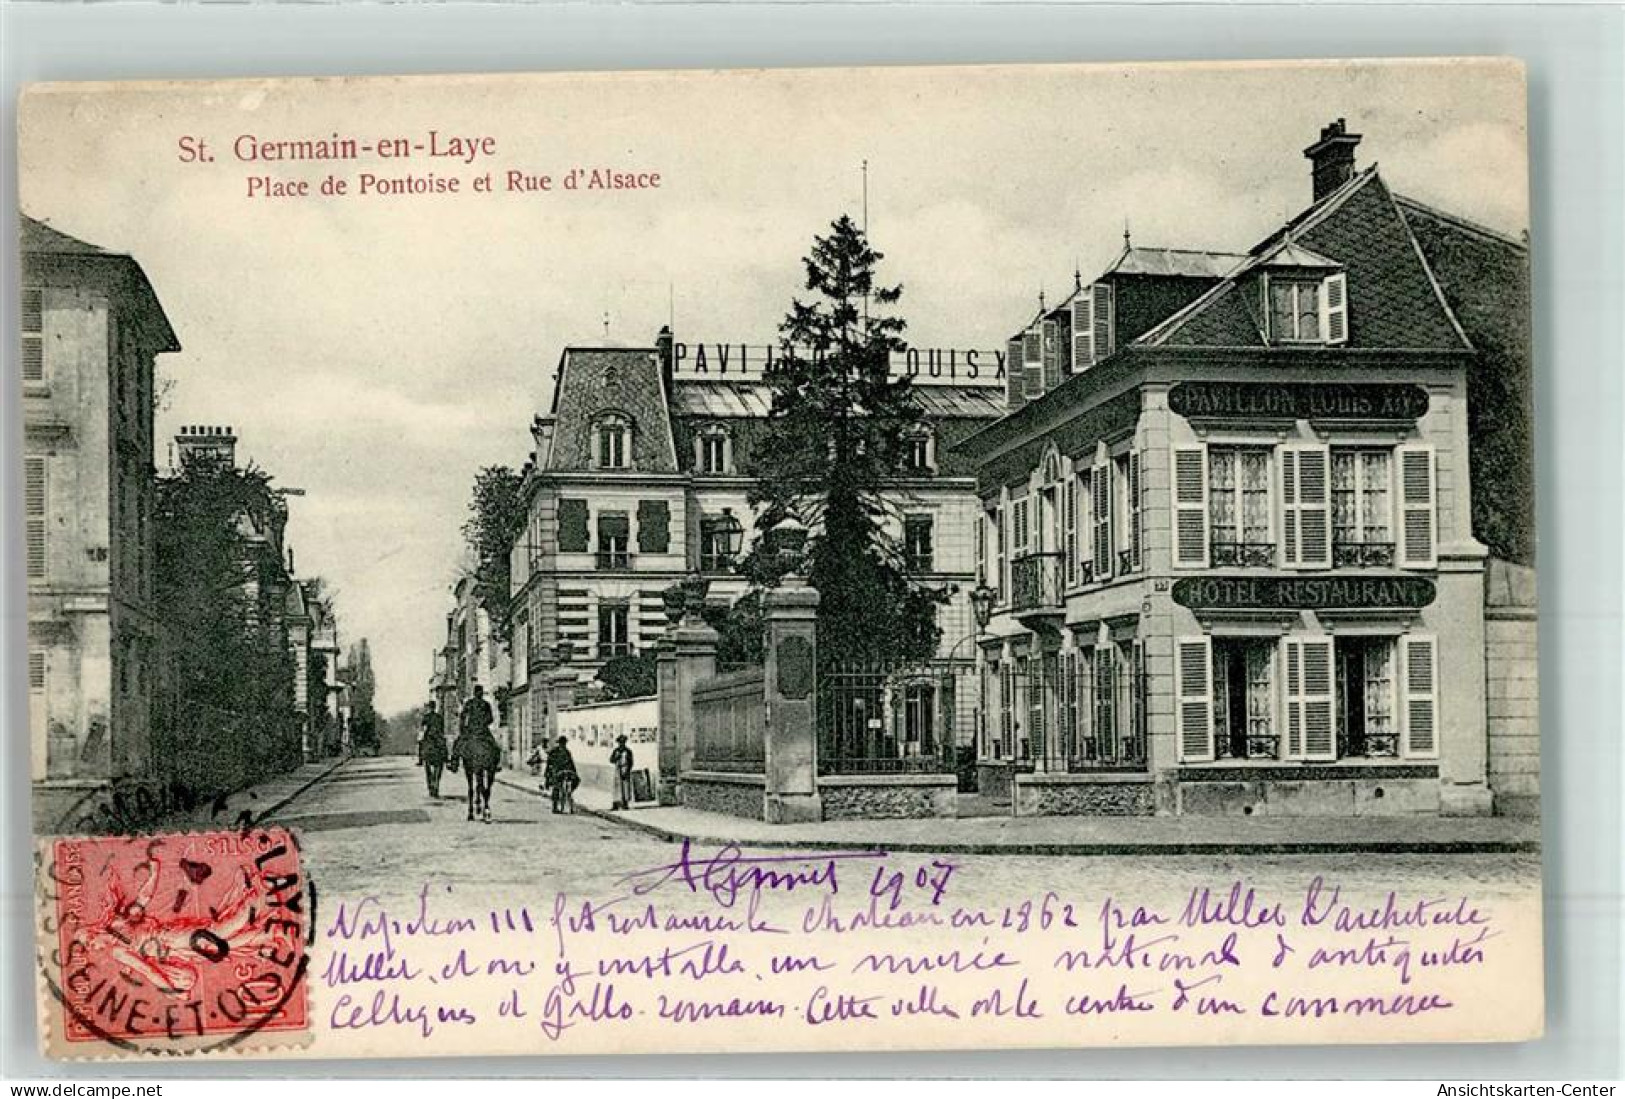 St. Germain-en-Laye
Place de Pontoise et Rue d'Alsace
PAVILLO OUIS X
PAVILLON LOUIS XIV
HOTEL RESTAURANT
1907
Napoléon III fit restaurer le chateau en 1862 par Millet L'architecte
Millet, et on y installa un musée national d'antiquités
Celtiques et Gallo-romaines. Cette ville est le centre d'un commerce
POSTES
10
LAYE
SEINE-ET-OISE
Ansichtskarten-Center